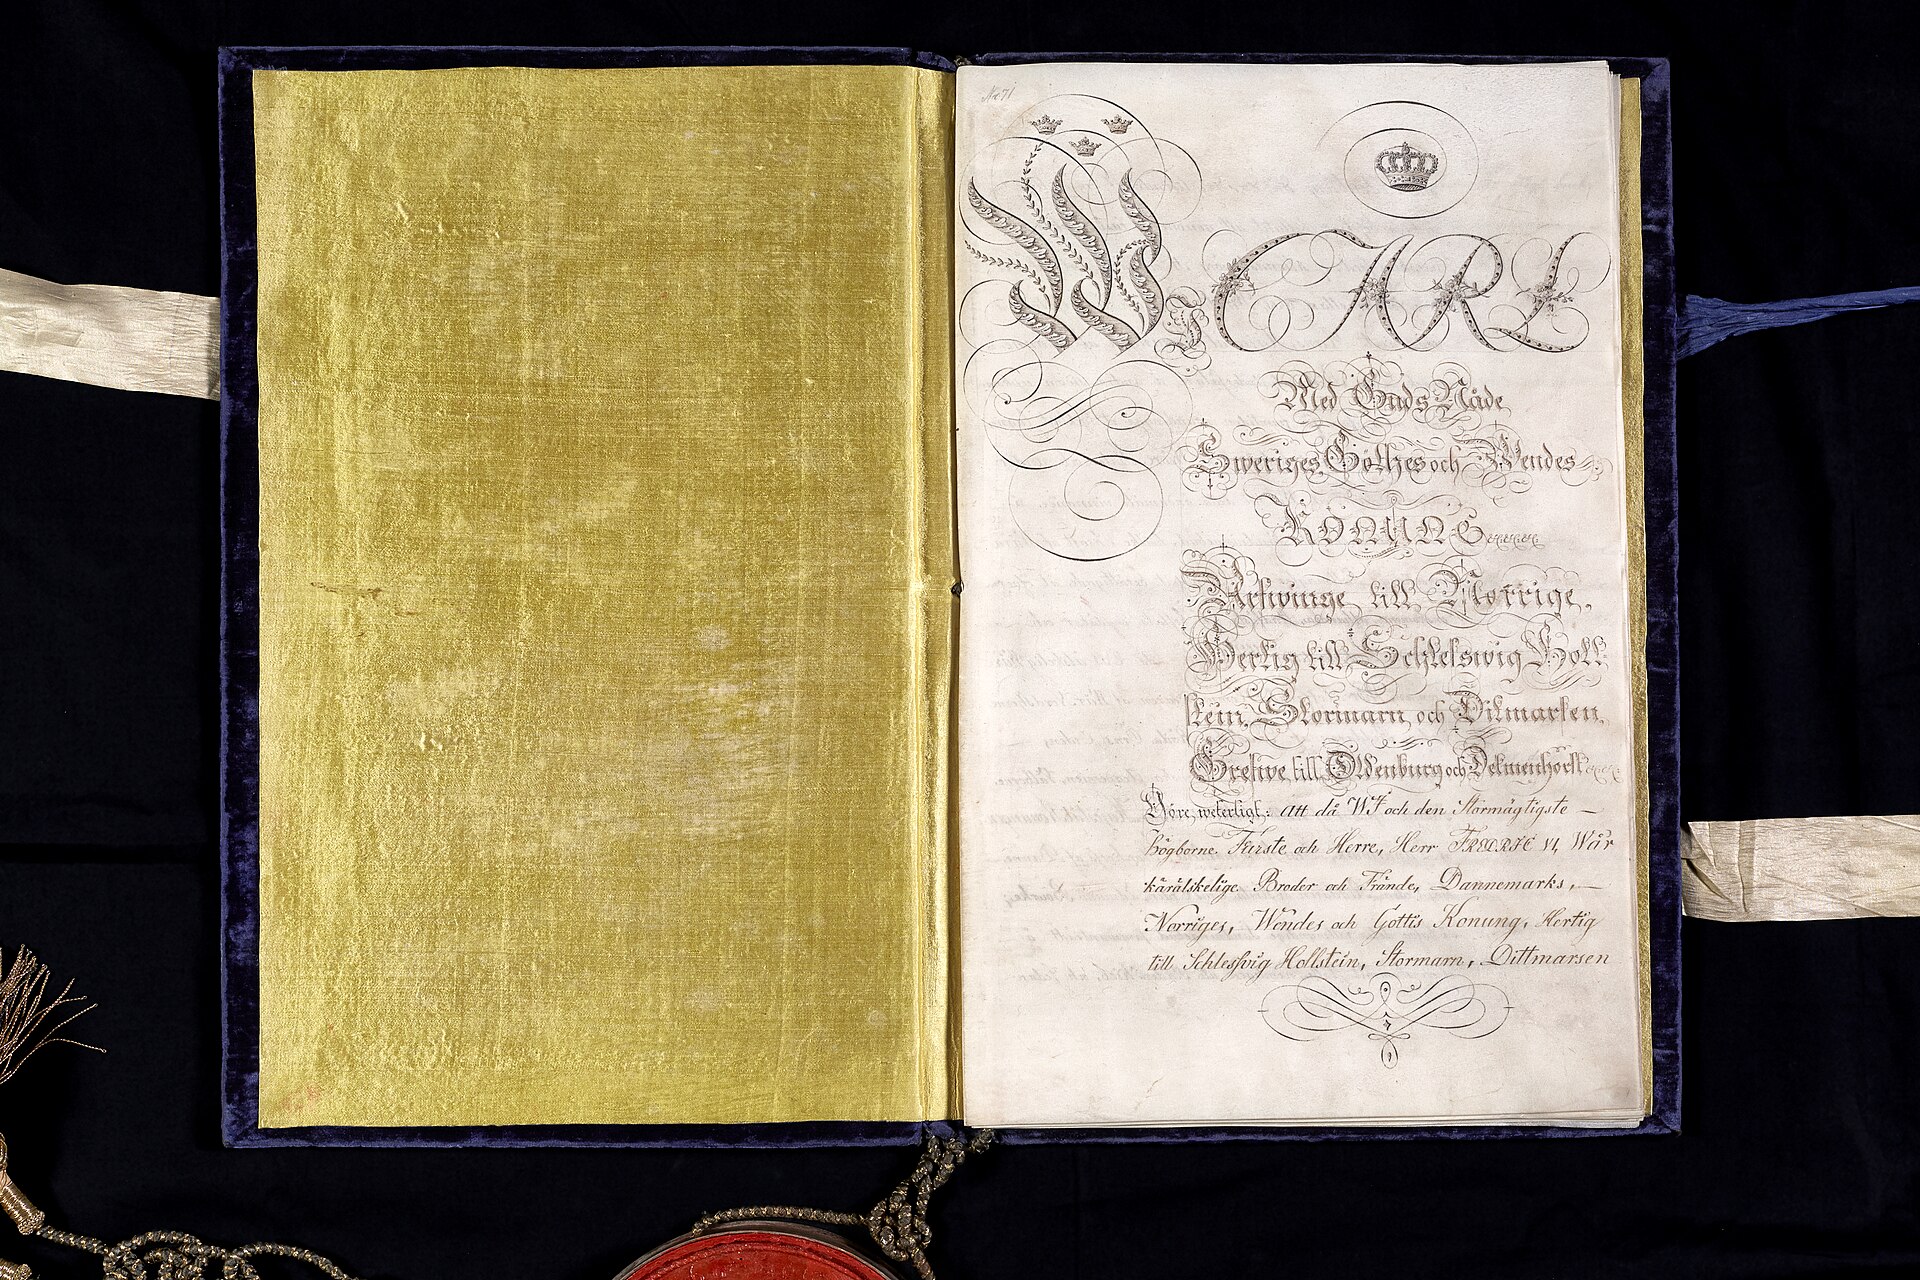 No 71
WI CARL
Med Guds Nåde
Sweriges, Göthes och Wendes
KONUNG
Arfwinge till Norrige,
Hertig till Schleswig Holl-
stein, Stormarn, och Ditmarsen,
Grefwe till Oldenburg och Delmenhorst
Göre weterligt: att då WI och den Stormägtigste —
högborne Furste och Herre, Herr FREDRIC VI, Wår
kärälskelige Broder och Frände, Dannemarks, —
Norriges, Wendes och Göttis Konung, Hertig
till Schleswig Hollstein, Stormarn, Dittmarsen